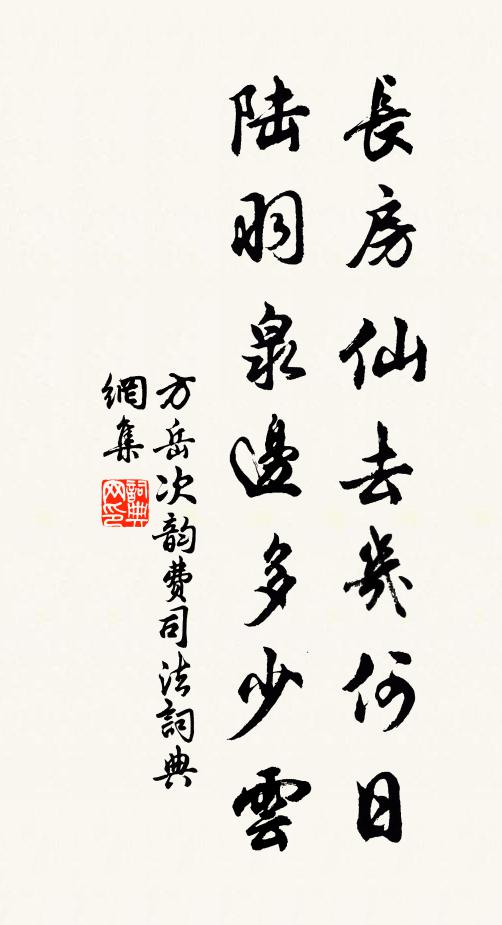 長房仙去幾何日
陸羽泉邊多少雲
方岳次韵費司法詞典
網集
詞典
网印